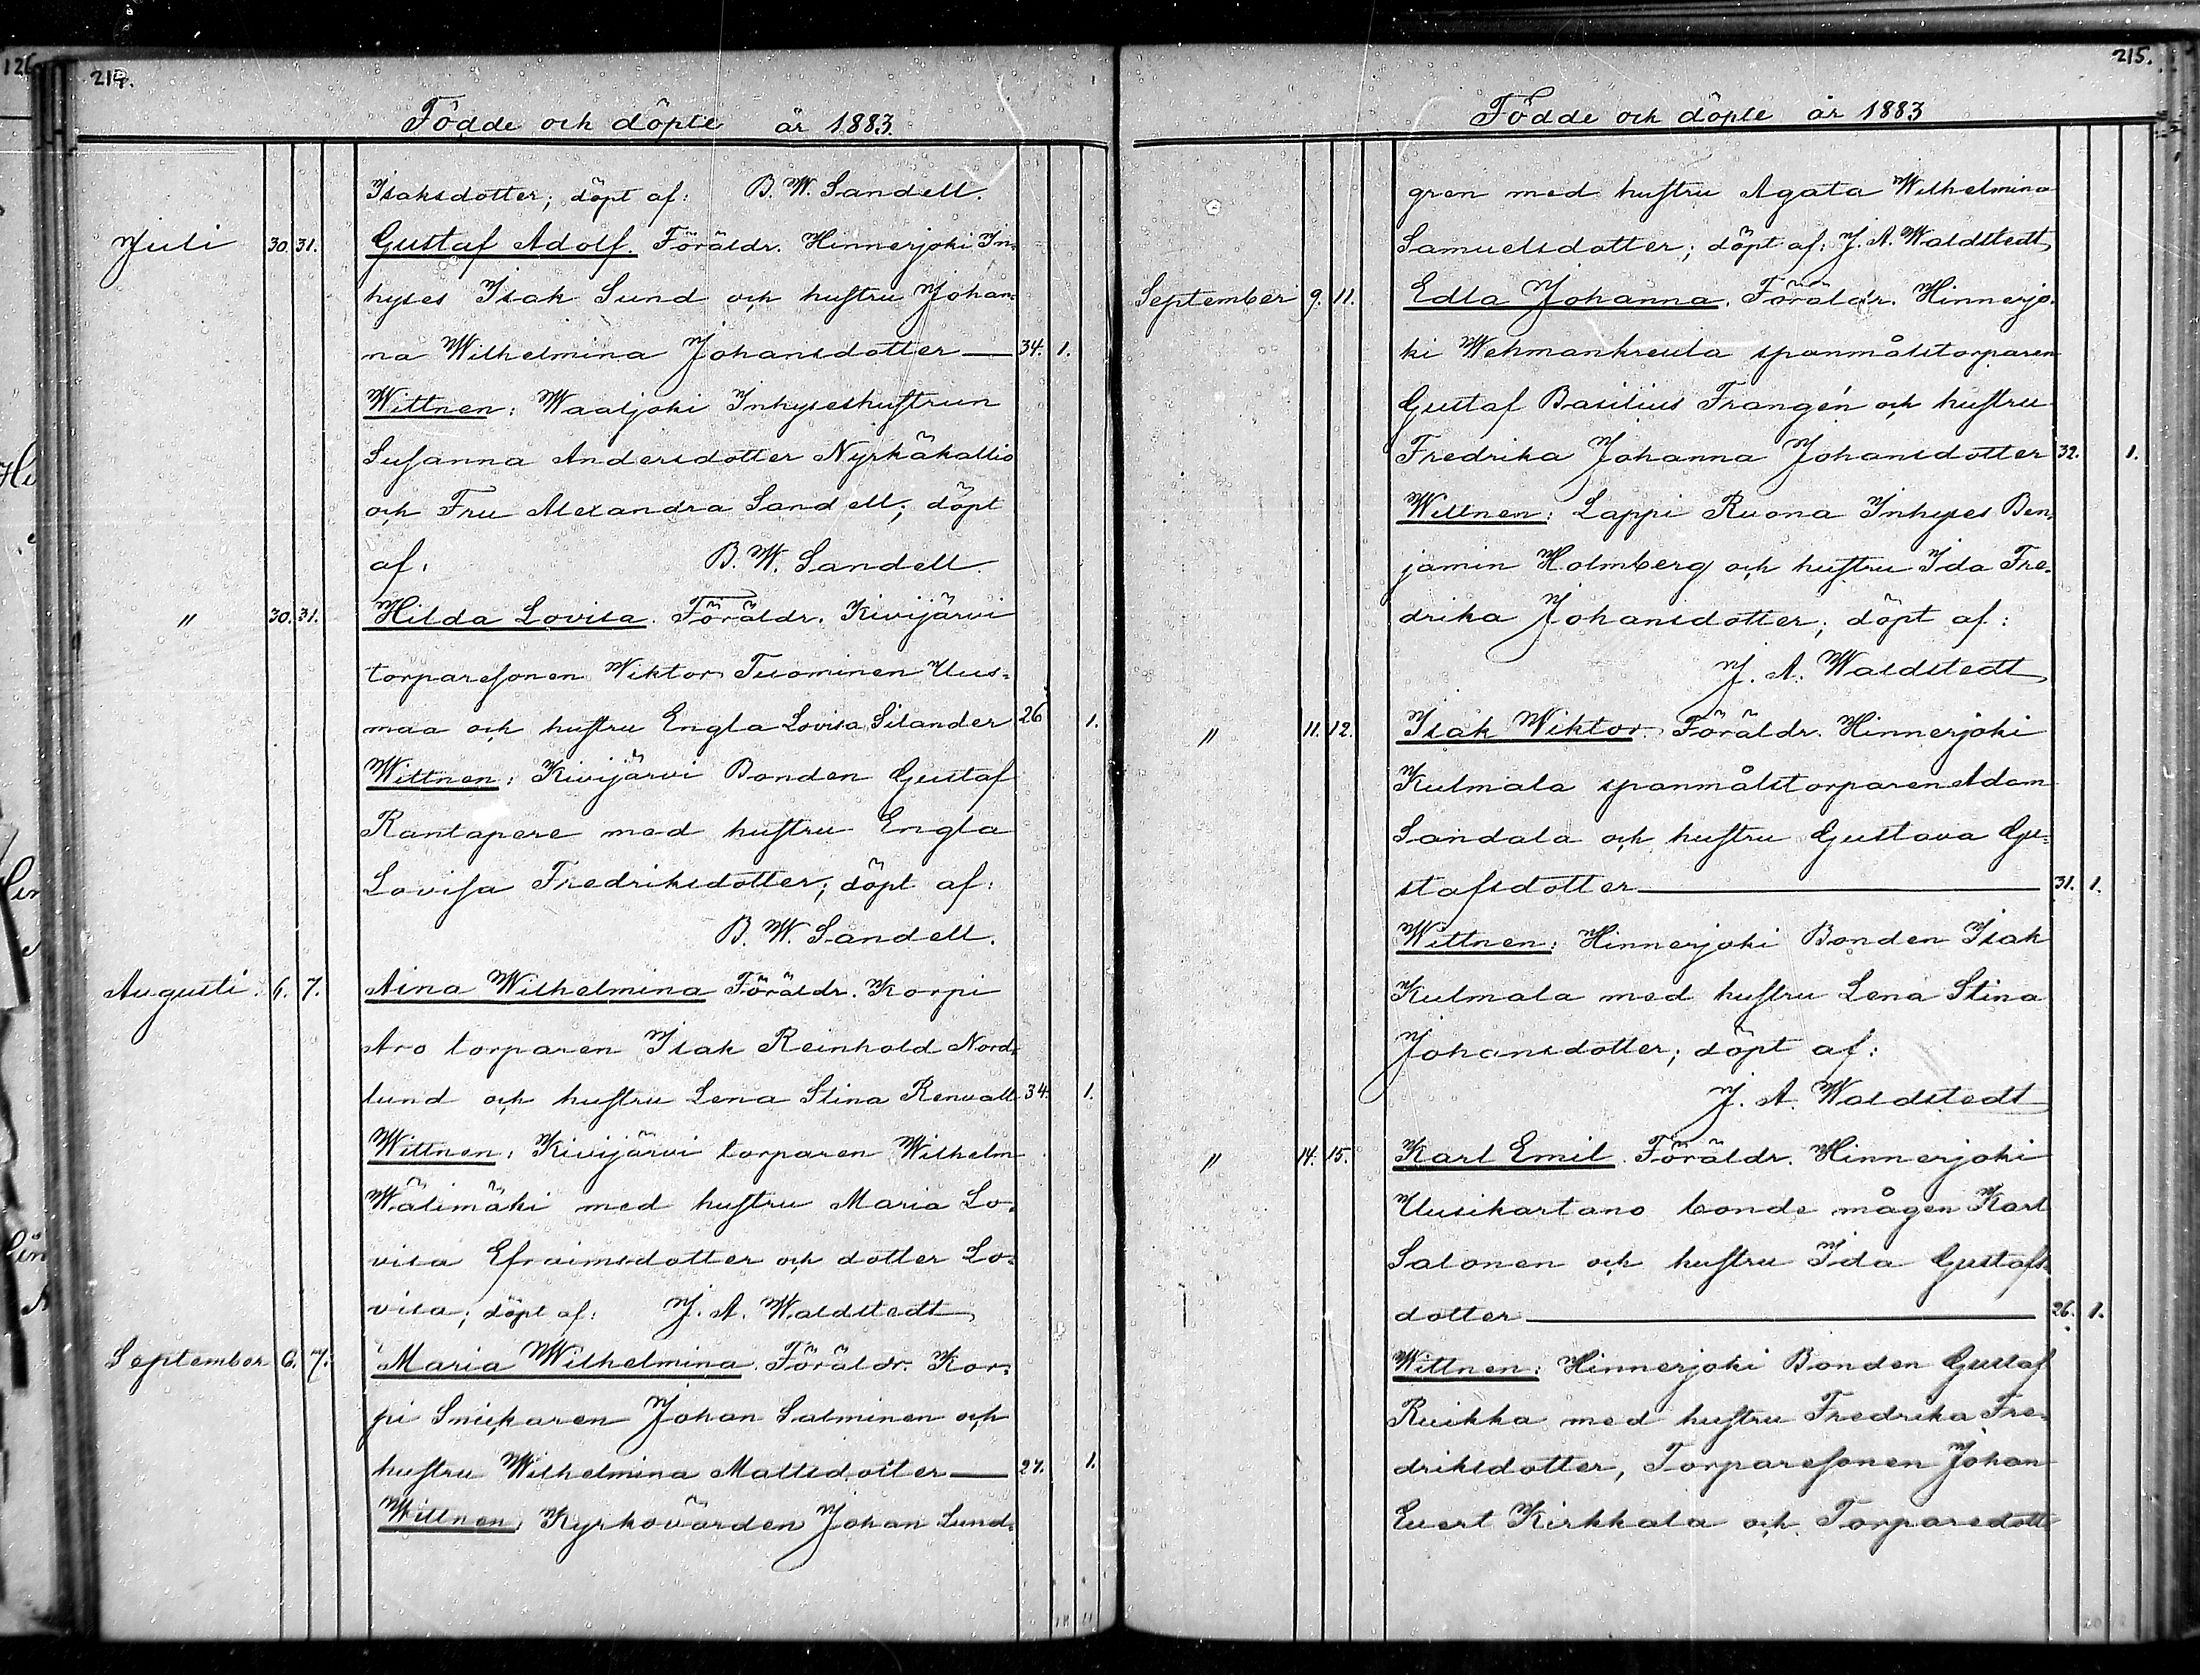 214.
Födde och döpte år 1883
Isaksdotter; döpt af: B. W. Sandell.
Juli 30. 31. Gustaf Adolf. Föräldr. Hinnerjoki In-
hyses Isak Sund och hustru Johan-
na Wilhelmina Johansdotter — 34. 1.
Wittnen: Waaljoki Inhyseshustrun
Susanna Andersdotter Nyrkäkallio
och Fru Alexandra Sandell; döpt
af: B. W. Sandell.
" 30. 31. Hilda Lovisa. Föräldr. Kivijärvi
torparesonen Wiktor Tuominen Uus-
maa och hustru Engla Lovisa Silander 26 1.
Wittnen: Kivijärvi Bonden Gustaf
Rantapere med hustru Engla
Lovisa Fredriksdotter; döpt af:
B. W. Sandell.
Augusti. 6. 7. Aina Wilhelmina Föräldr. Korpi
Aro torparen Isak Reinhold Nord-
lund och hustru Lena Stina Renvall 34. 1.
Wittnen: Kivijärvi torparen Wilhelm
Wälimäki med hustru Maria Lo-
visa Efraimsdotter och dotter Lo-
visa; döpt af: J. A. Waldstedt
September 6. 7. Maria Wilhelmina. Föräldr. Kor-
pi Snickaren Johan Salminen och
hustru Wilhelmina Mattsdotter — 27. 1.
Wittnen: Kyrkovärden Johan Lund-
215.
Födde och döpte år 1883
gren med hustru Agata Wilhelmina
Samuelsdotter; döpt af: J. A. Waldstedt
September 9. 11. Edla Johanna. Föräldr. Hinnerjo-
ki Wehmankreula spanmålstorparen
Gustaf Basilius Frangén och hustru
Fredrika Johanna Johansdotter 32. 1.
Wittnen: Lappi Ruona Inhyses Ben-
jamin Holmberg och hustru Ida Fre-
drika Johansdotter; döpt af:
J. A. Waldstedt
" 11. 12. Isak Wiktor. Föräldr. Hinnerjoki
Kulmala spanmålstorparen Adam
Sandala och hustru Gustava Gu-
stafsdotter — 31. 1.
Wittnen: Hinnerjoki Bonden Isak
Kulmala med hustru Lena Stina
Johansdotter; döpt af:
J. A. Waldstedt
" 14. 15. Karl Emil. Föräldr. Hinnerjoki
Uusikartano bonde mågen Karl
Salonen och hustru Ida Gustafs-
dotter — 26. 1.
Wittnen: Hinnerjoki Bonden Gustaf
Ruikka med hustru Fredrika Fre-
driksdotter, Torparesonen Johan
Evert Kirkkala och Torparedott